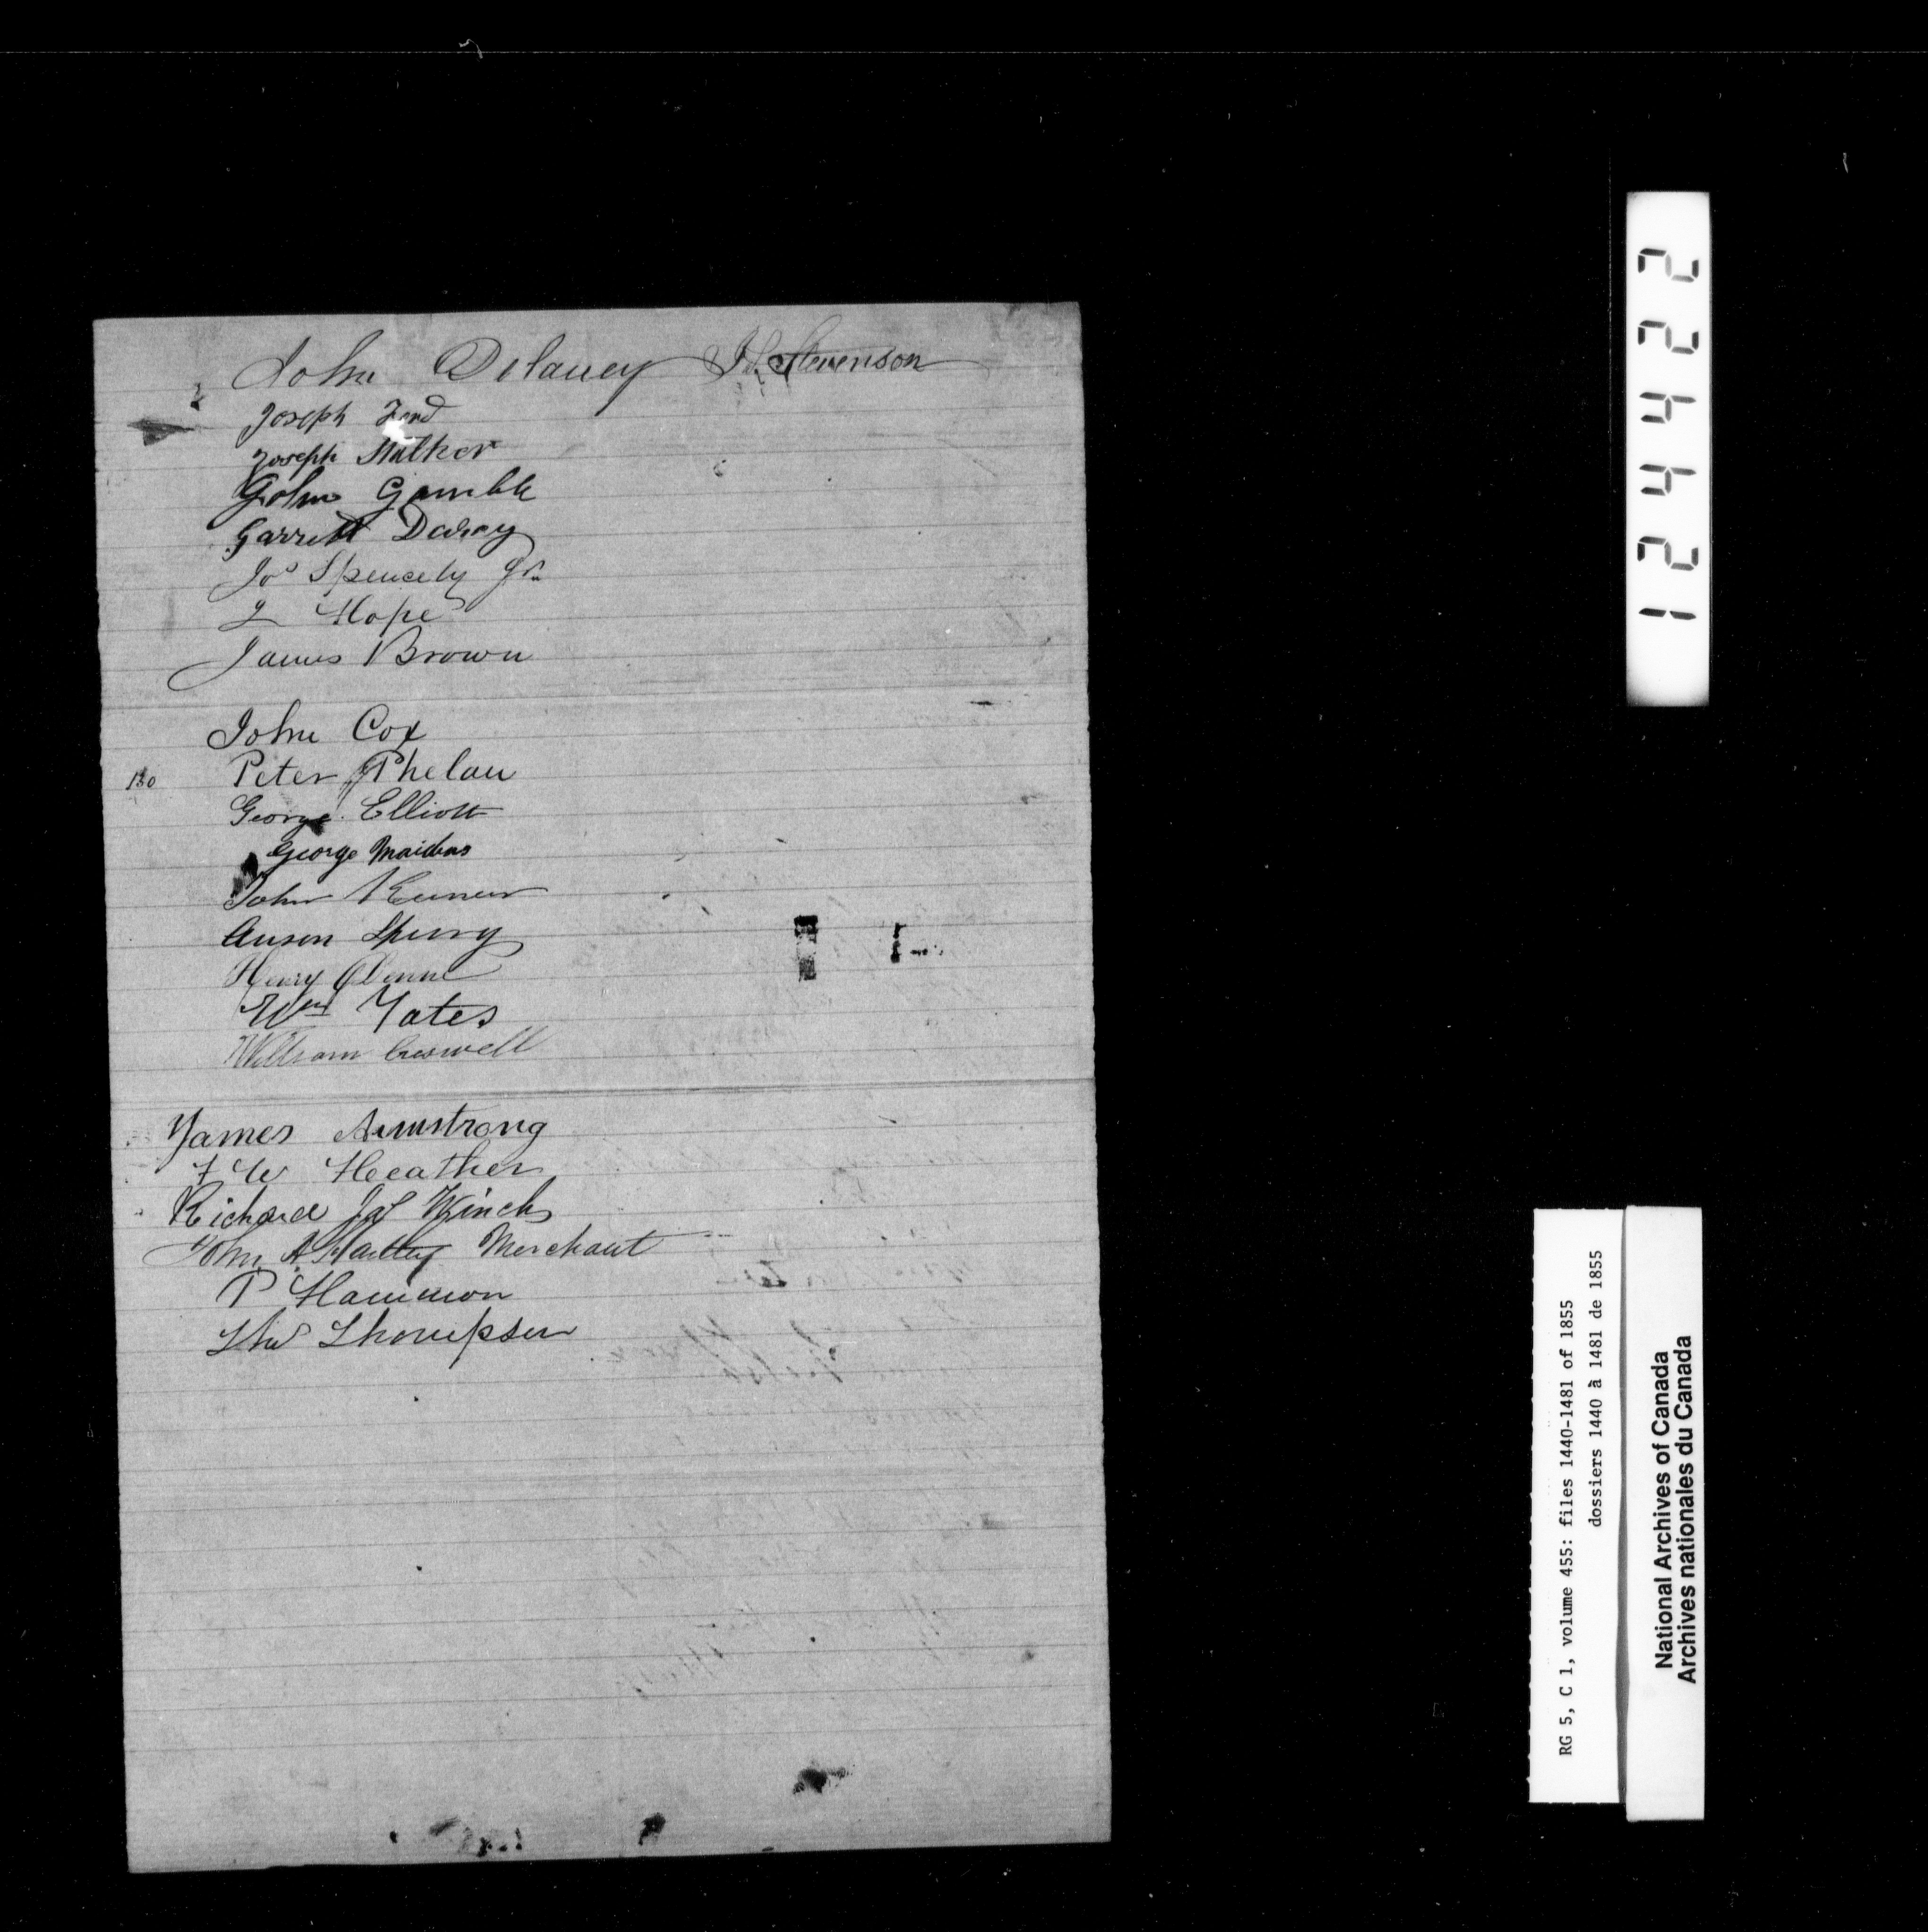 John Delaney J. Stevenson
Joseph Ford
Joseph Stalker
John Gamble
Garrett Darcy
Jos Spencely Jr.
L Hope
James Brown
John Cox
130 Peter Phelan
George Elliott
George Maidens
John
Anson Spurry
Henry Glenne
Wm Yates
William Creswell
James Armstrong
F W Heather
Richard Jas Winch
John A Hartley Merchant
P Hammon
Thos Thompson
122442
RG 5, C 1, volume 455: files 1440-1481 of 1855
dossiers 1440 à 1481 de 1855
National Archives of Canada
Archives nationales du Canada